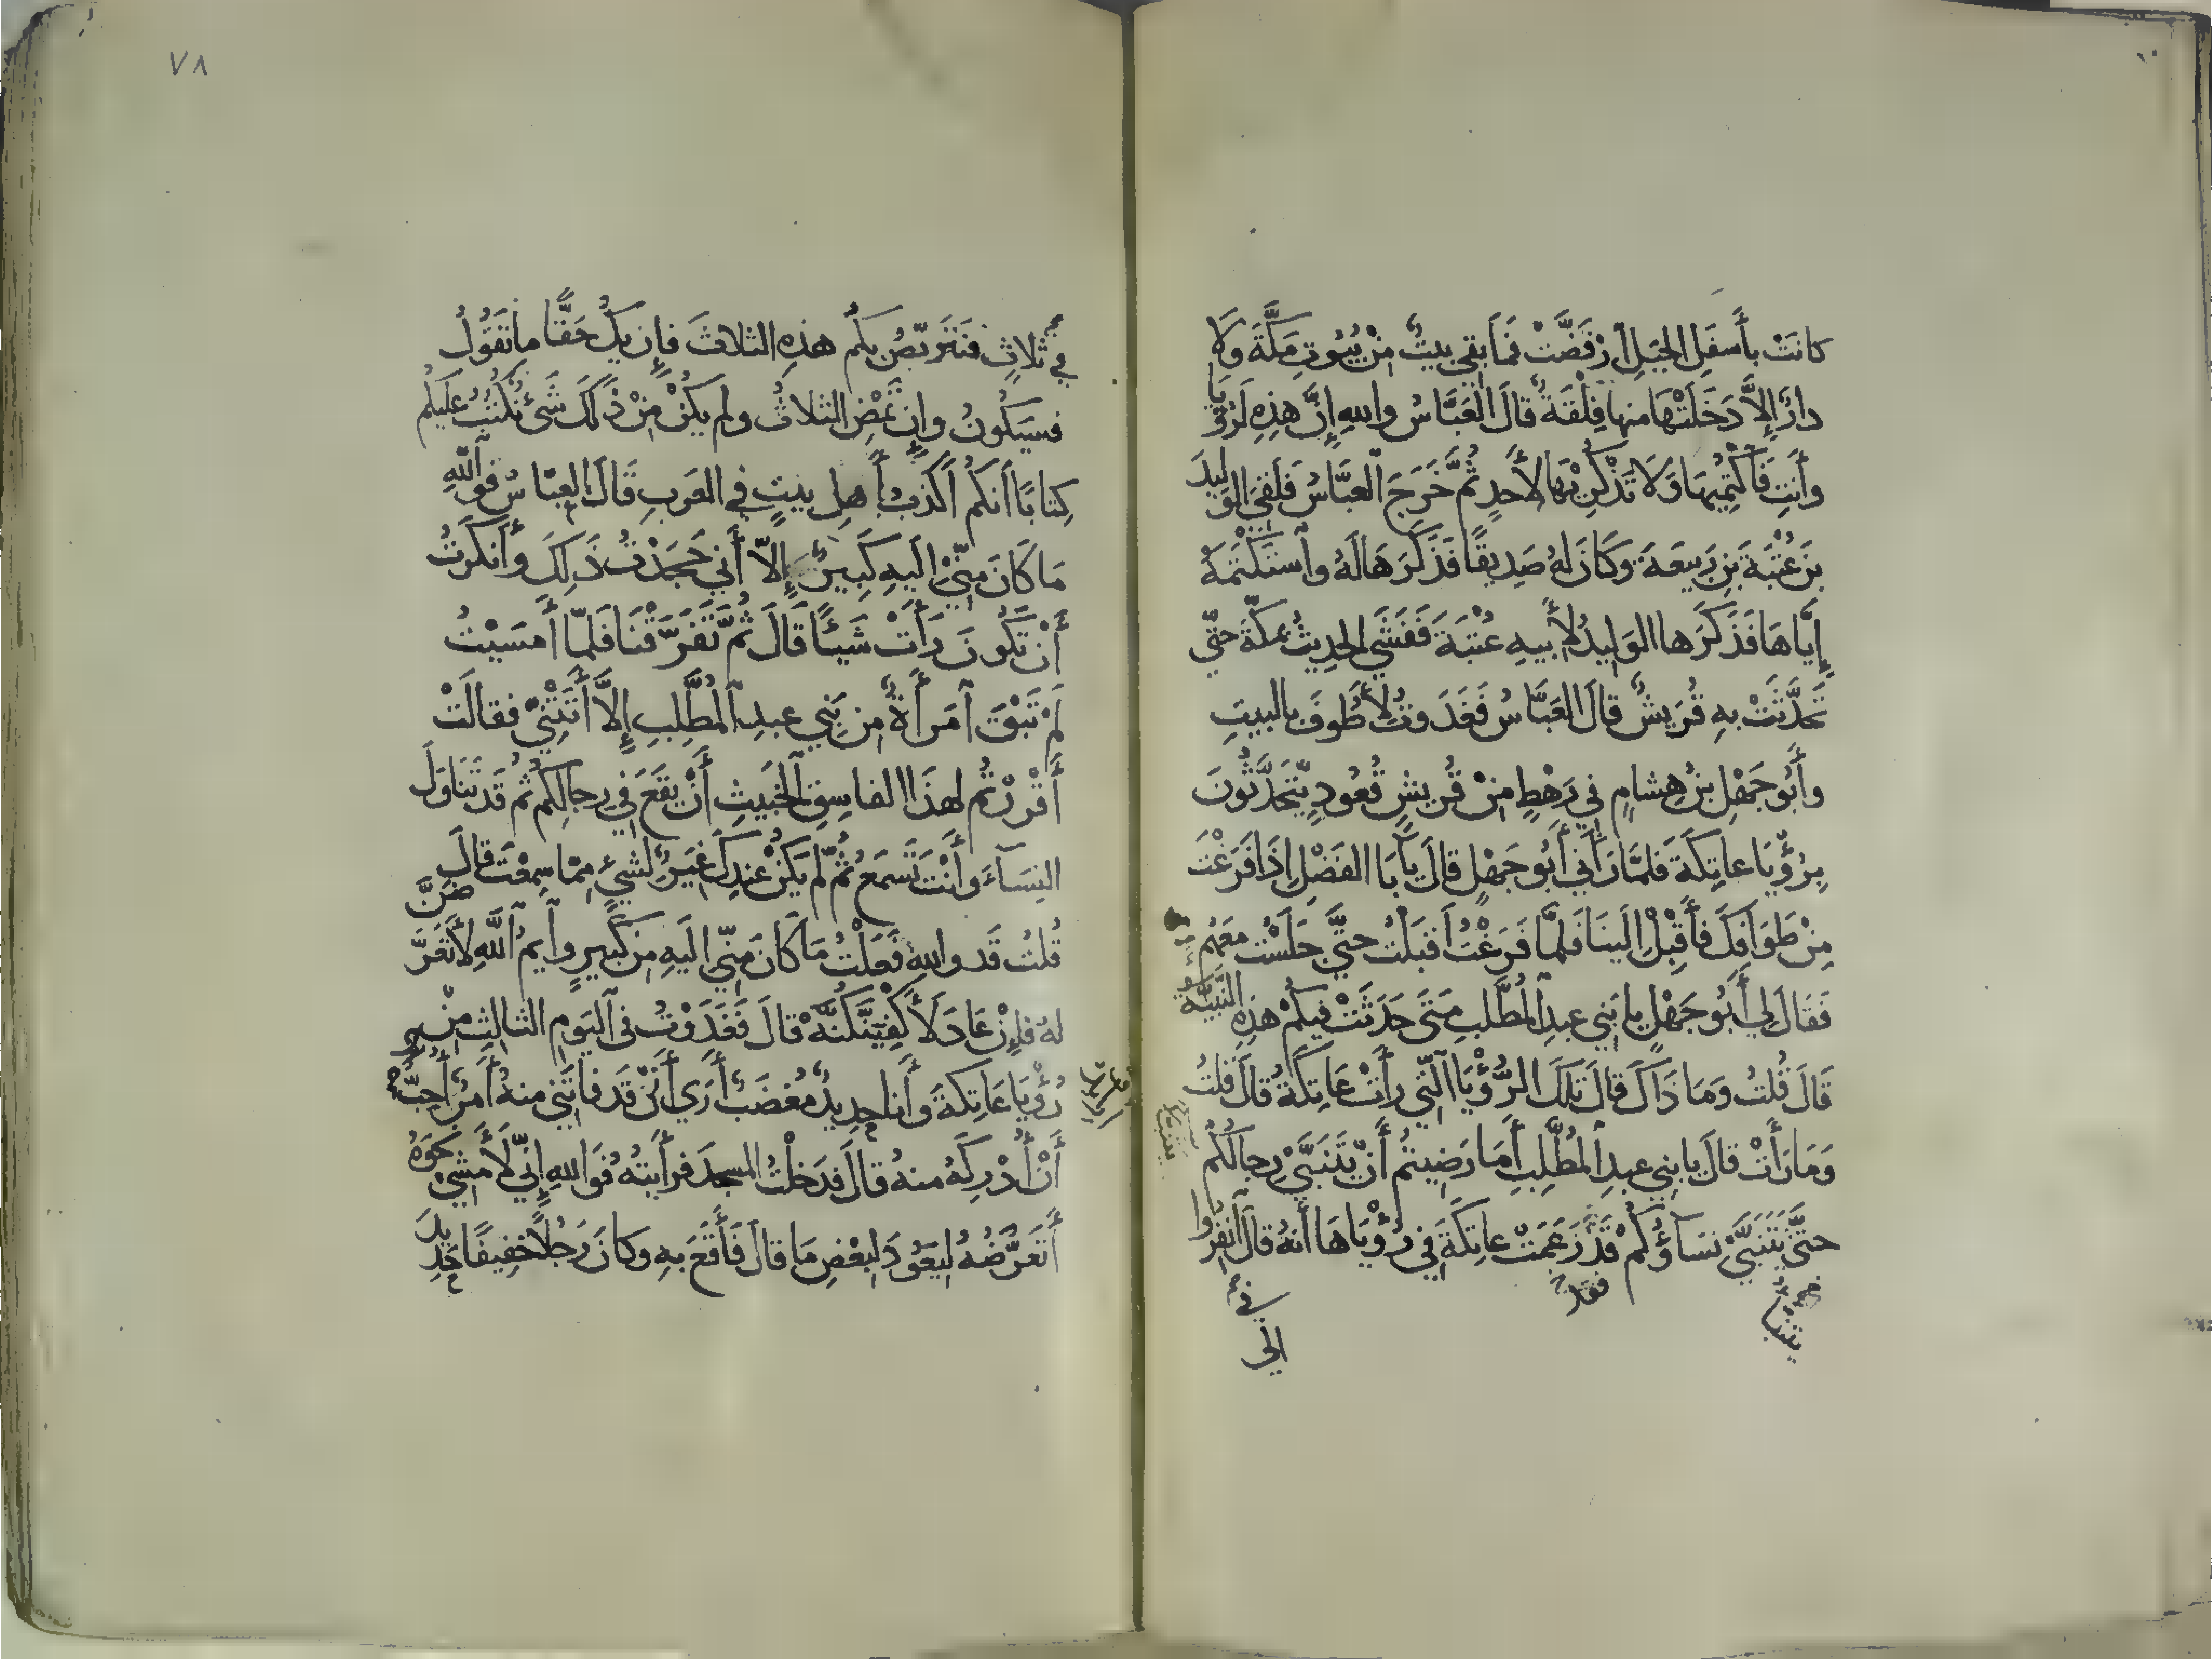 كانَتْ بأَسفَلِ الجبَلِ ارْفَضَّتْ فَمَا بَقِي بيتٌ مِنْ بُيُوتِ مَكَّةَ وَلَا
دارٌ إِلَّا دَخَلَتْهَا منها فِلْقَةٌ قالَ العَبَّاسُ واللهِ إِنَّ هذِهِ لَرُؤْيَا
وأَنتِ فَاكْتُمِيهَا وَلَا تَذْكُرِيهَا لأَحدٍ ثُمَّ خَرَجَ العبَّاسُ فَلَقِيَ الوَلِيدَ
بنَ عُتْبَةَ بنِ رَبِيعَةَ وكَانَ لهُ صَدِيقًا فَذَكَرَهَا لَهُ واسْتَكْتَمَهُ
إِيَّاهَا فَذَكَرَها الوَلِيدُ لأَبيهِ عُتْبَةَ فَفَشَى الحدِيثُ بمكَّةَ حتَّى
تَحدَّثَتْ بهِ قُرَيشٌ قالَ العَبَّاسُ فَغَدَوتُ لأَطُوفَ بالبيتِ
وأَبُو جَهْلِ بنُ هِشامٍ في رَهْطٍ مِنْ قُرَيشٍ قُعُودٍ يَتَحَدَّثُونَ
بِرُؤْيَا عاتِكَةَ فَلمَّا رَآنِي أَبُو جَهْلٍ قالَ يا أَبَا الفَضْلِ إذَا فَرَغْتَ
مِنْ طَوَافِكَ فأَقْبِلْ إلَينَا فَلمَّا فَرَغْتُ أَقبَلْتُ حتَّى جَلَسْتُ معَهُم
فَقَالَ لِي أَبُو جَهْلٍ يا بَنِي عبدِ المُطَّلِبِ مَتَى حَدَثَتْ فِيكُمْ هذِهِ النَّبِيَّةُ
قَالَ قُلتُ وَمَا ذَاكَ قالَ تِلكَ الرُّؤْيَا الَّتي رأَتْ عَاتِكَةُ قالَ قلتُ
وَمَا رَأَتْ قالَ يا بني عبدِ المُطَّلِبِ أَمَا رَضِيتُم أَنْ يَتَنَبَّى رجالُكُم
حتَّى يَتَنَبَّى نسَاؤُكُمْ قَدْ زَعَمَتْ عاتِكَةُ في رُؤْيَاهَا أنَّهُ قالَ انفِرُوا
فقد
في
الى
٧٨
في ثلاثٍ فنَتَرَبَّصُ بكُم هذِهِ الثلاثَ فإِن يَكُ حَقًّا ما تَقُولُ
فسيَكُونُ وإِن تَمْضِ الثلاثُ ولم يكُنْ مِنْ ذَلكَ شَيْءٌ نَكتُبُ عليكم
كِتابًا أنكُم أَكذَبُ أَهلِ بيتٍ في العَرَبِ قَالَ العبَّاسُ فواللهِ
مَا كَانَ مِنِّي إليهِ كَبِيرٌ إِلَّا أَنِّي جَحَدْتُ ذَلِكَ وأَنكَرتُ
أَنْ تَكُونَ رَأَتْ شَيئًا قَالَ ثُمَّ تَفَرَّقْنَا فَلَمَّا أَمْسَيْتُ
لَمْ تَبْقَ امْرَأَةٌ مِن بَنِي عبدِ المُطَّلِبِ إِلَّا أَتَتْنِي فقالَتْ
أَقْرَرْتُم لهذَا الفاسِقِ الخَبِيثِ أَنْ يَقَعَ في رجالِكُمْ ثُم قَد تَنَاوَلَ
النِسَاءَ وأَنْتَ تَسْمَعُ ثُمَّ لَم يَكُنْ عندكَ غِيَرٌ لشيءٍ مِمَّا سمِعْتَ قالَ
قُلتُ قَد واللهِ فَعَلْتُ مَا كَانَ مِنِّي إلَيهِ مِن كَبيرٍ وايمُ اللهِ لأَتَعَرَّضَنَّ
لهُ فإِنْ عَادَ لأَكْفِيَنَّكُنَّهُ قالَ فَغَدَوْتُ في اليَومِ الثالِثِ مِنْ
رُؤْيَا عَاتِكَةَ وأَنا حديدٌ مُغضَبٌ أَرَى أَنِّي قَد فاتَنِي منهُ أَمرٌ أُحِبُّ
أَنْ أُدْرِكَهُ منهُ قالَ فدَخلْتُ المسجدَ فرأيتُهُ فَوَاللهِ إِنِّي لأَمْشي نَحوَهُ
أَتَعَرَّضُهُ لِيَعُودَ لبعْضِ مَا قالَ فَأَقَعَ بهِ وكانَ رَجُلًا خفِيفًا حَدِيدَ